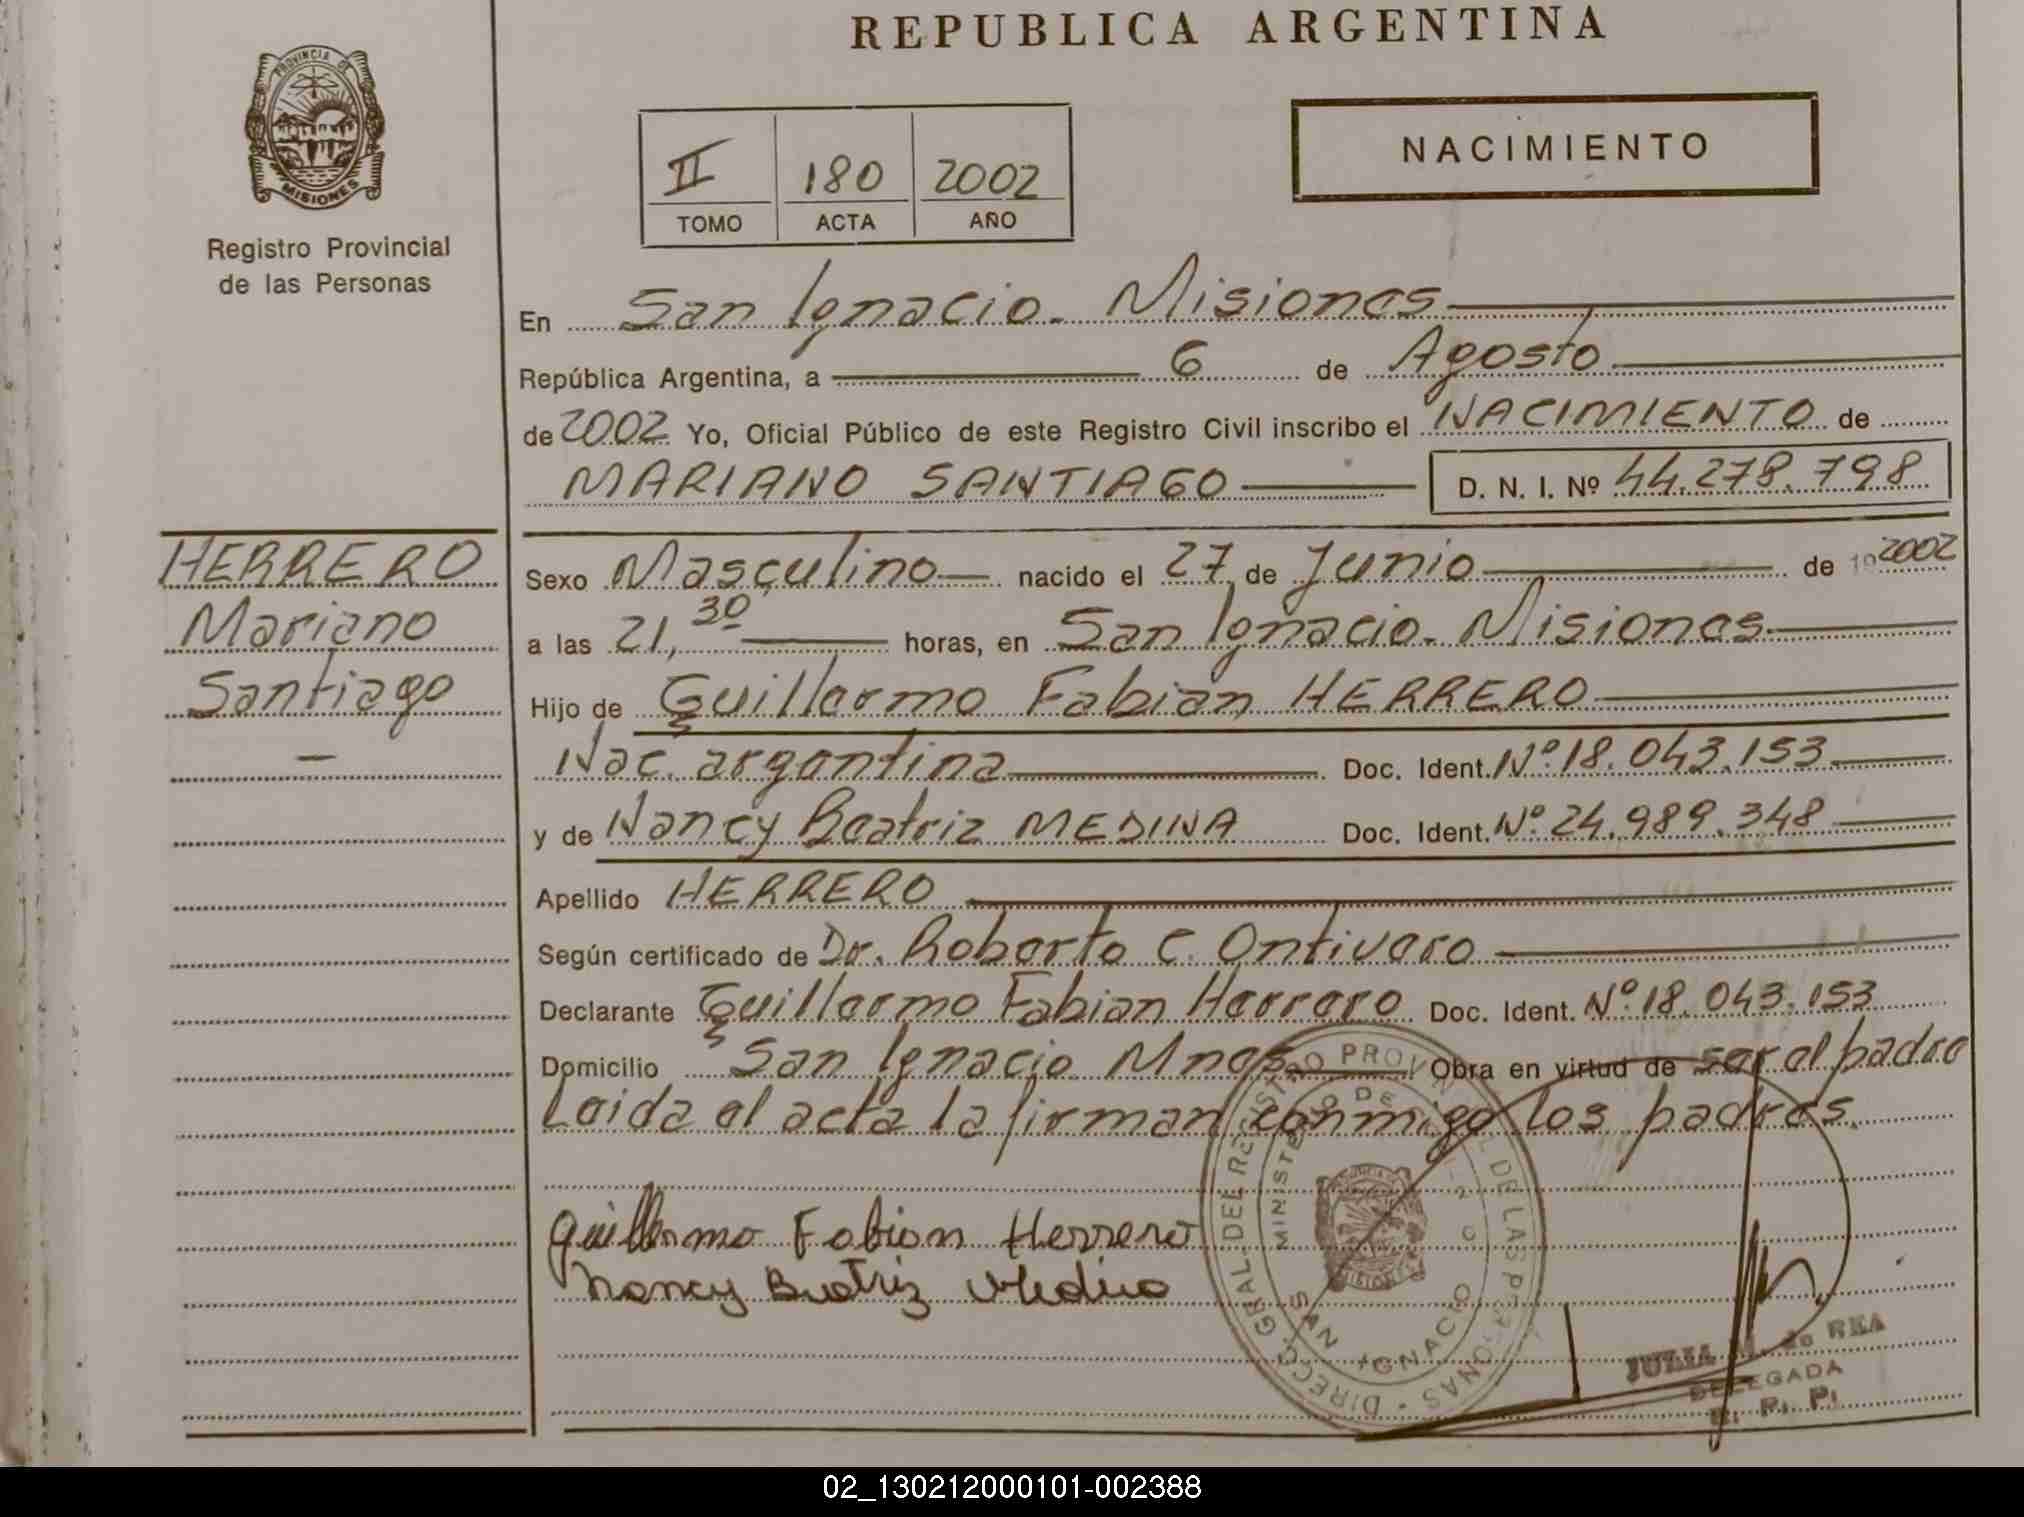 REPUBLICA ARGENTINA
PROVINCIA DE
MISIONES
Registro Provincial
de las Personas
II 180 2002
TOMO ACTA AÑO
NACIMIENTO
En San Ignacio. Misiones
República Argentina, a 6 de Agosto
de 2002 Yo, Oficial Público de este Registro Civil inscribo el NACIMIENTO de
MARIANO SANTIAGO D. N. I. Nº 44.278.798
HERRERO
Mariano
Santiago
Sexo Masculino nacido el 27 de Junio de 19 2002
a las 21,30 horas, en San Ignacio. Misiones
Hijo de Guillermo Fabian HERRERO
Nac. argentina Doc. Ident. Nº 18.043.153
y de Nancy Beatriz MEDINA Doc. Ident. Nº 24.989.348
Apellido HERRERO
Según certificado de Dr. Roberto C. Ontivero
Declarante Guillermo Fabian Herrero Doc. Ident. Nº 18.043.153
Domicilio San Ignacio Mnes Obra en virtud de ser el padre
Leida el acta la firman conmigo los padres.
Guillermo Fabian Herrero
Nancy Beatriz Medina
DIRECC. GRAL. DEL REGISTRO PROVINCIAL DE LAS PERSONAS
MINISTERIO DE
MISIONES
SAN IGNACIO
JULIA M. de REA
DELEGADA
R. P. P.
02_130212000101-002388